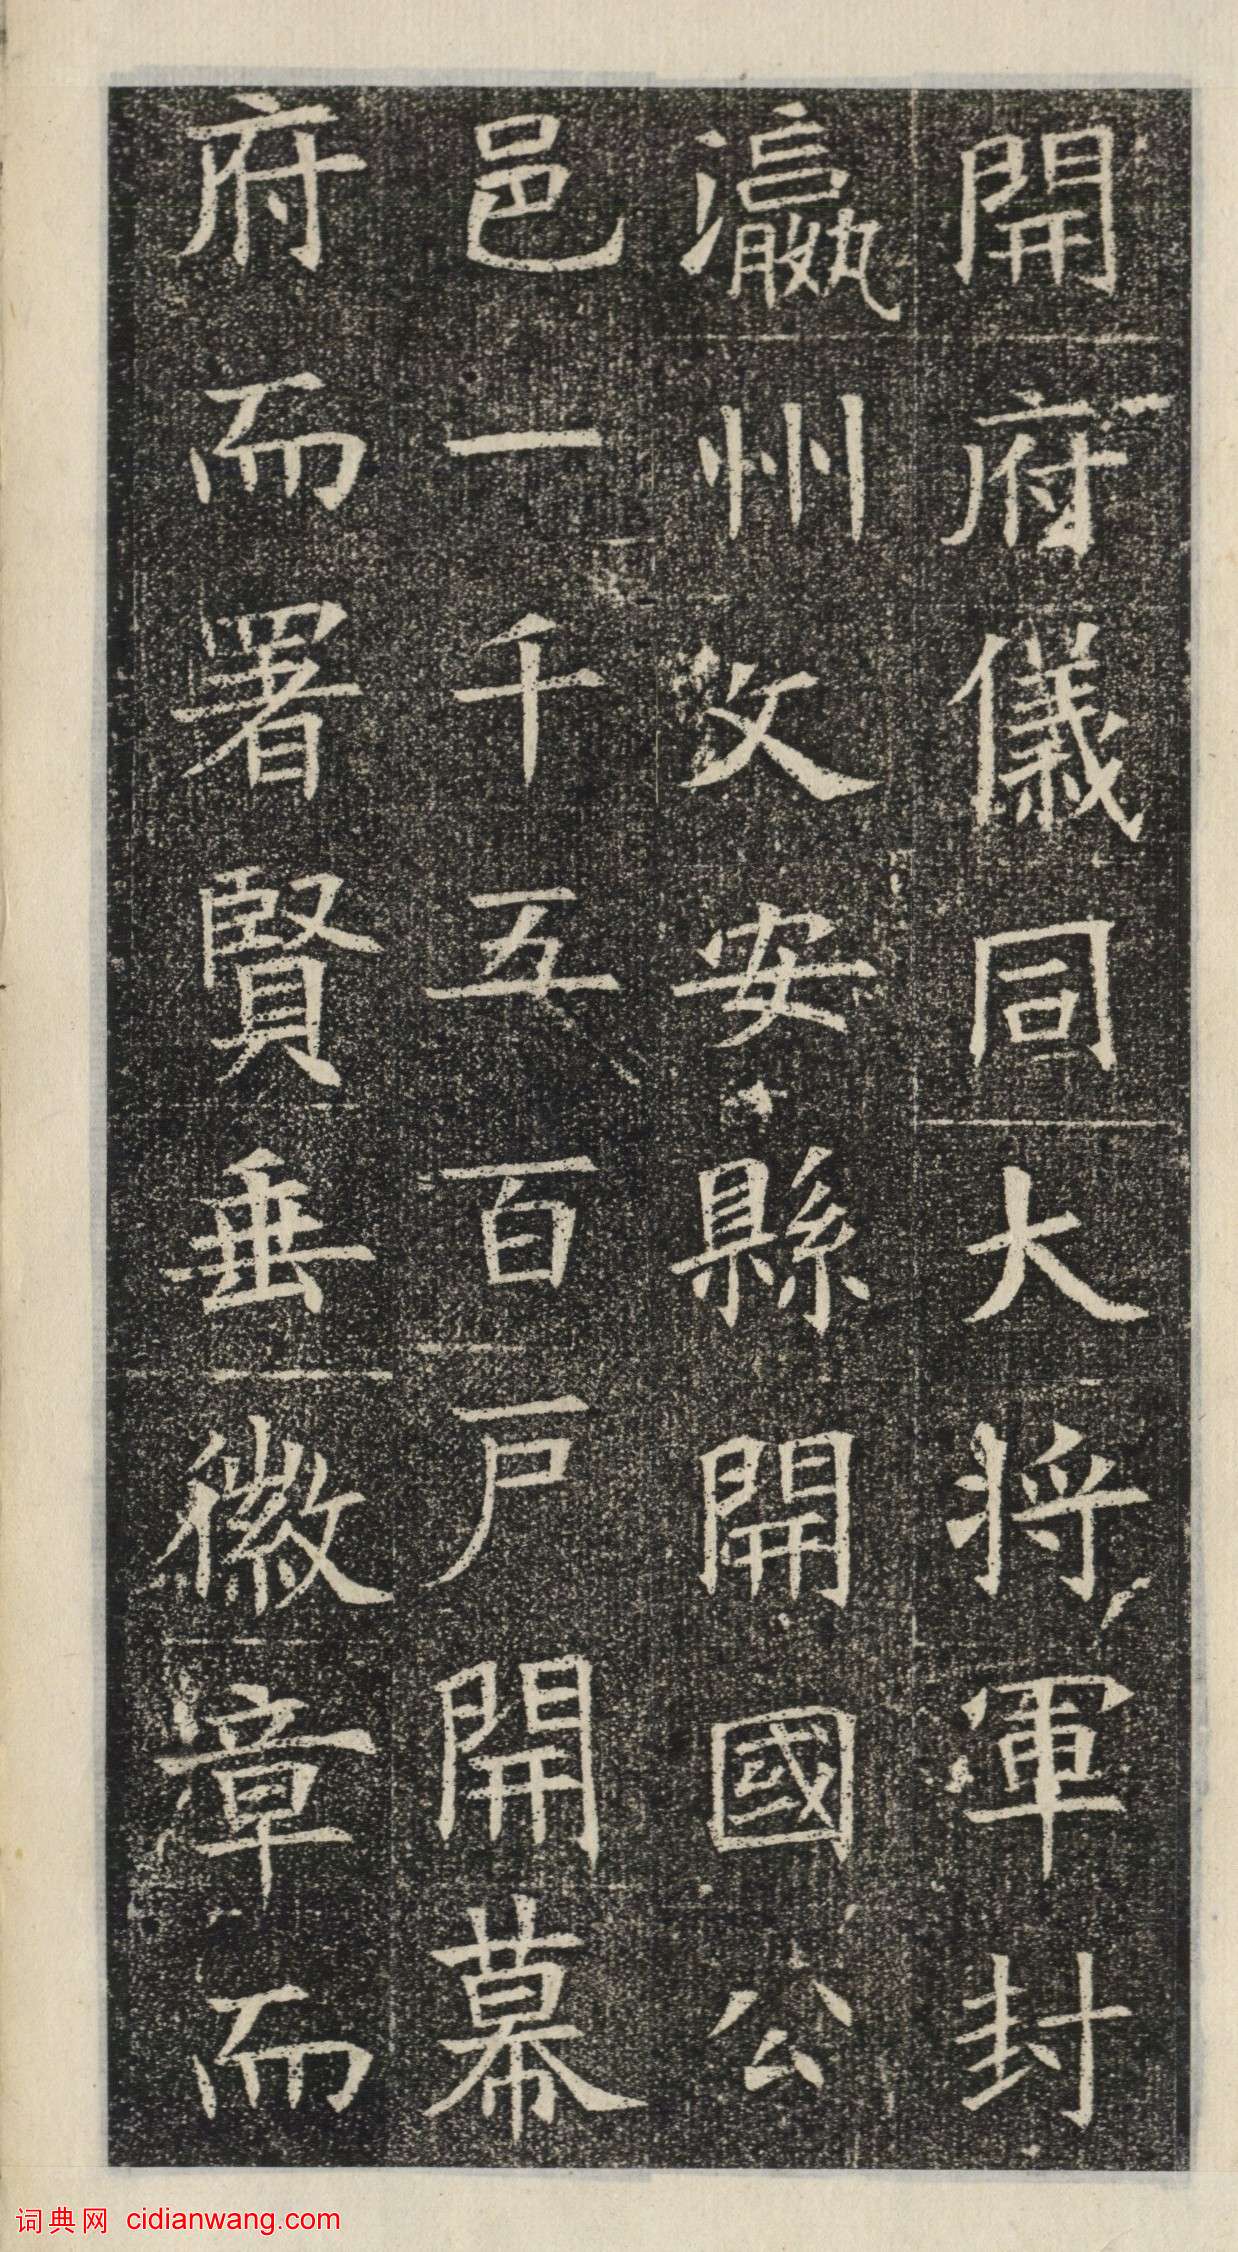 開府儀同大將軍封
瀛州文安縣開國公
邑一千五百戶開幕
府而署賢垂徽章而
词典网 cidianwang.com